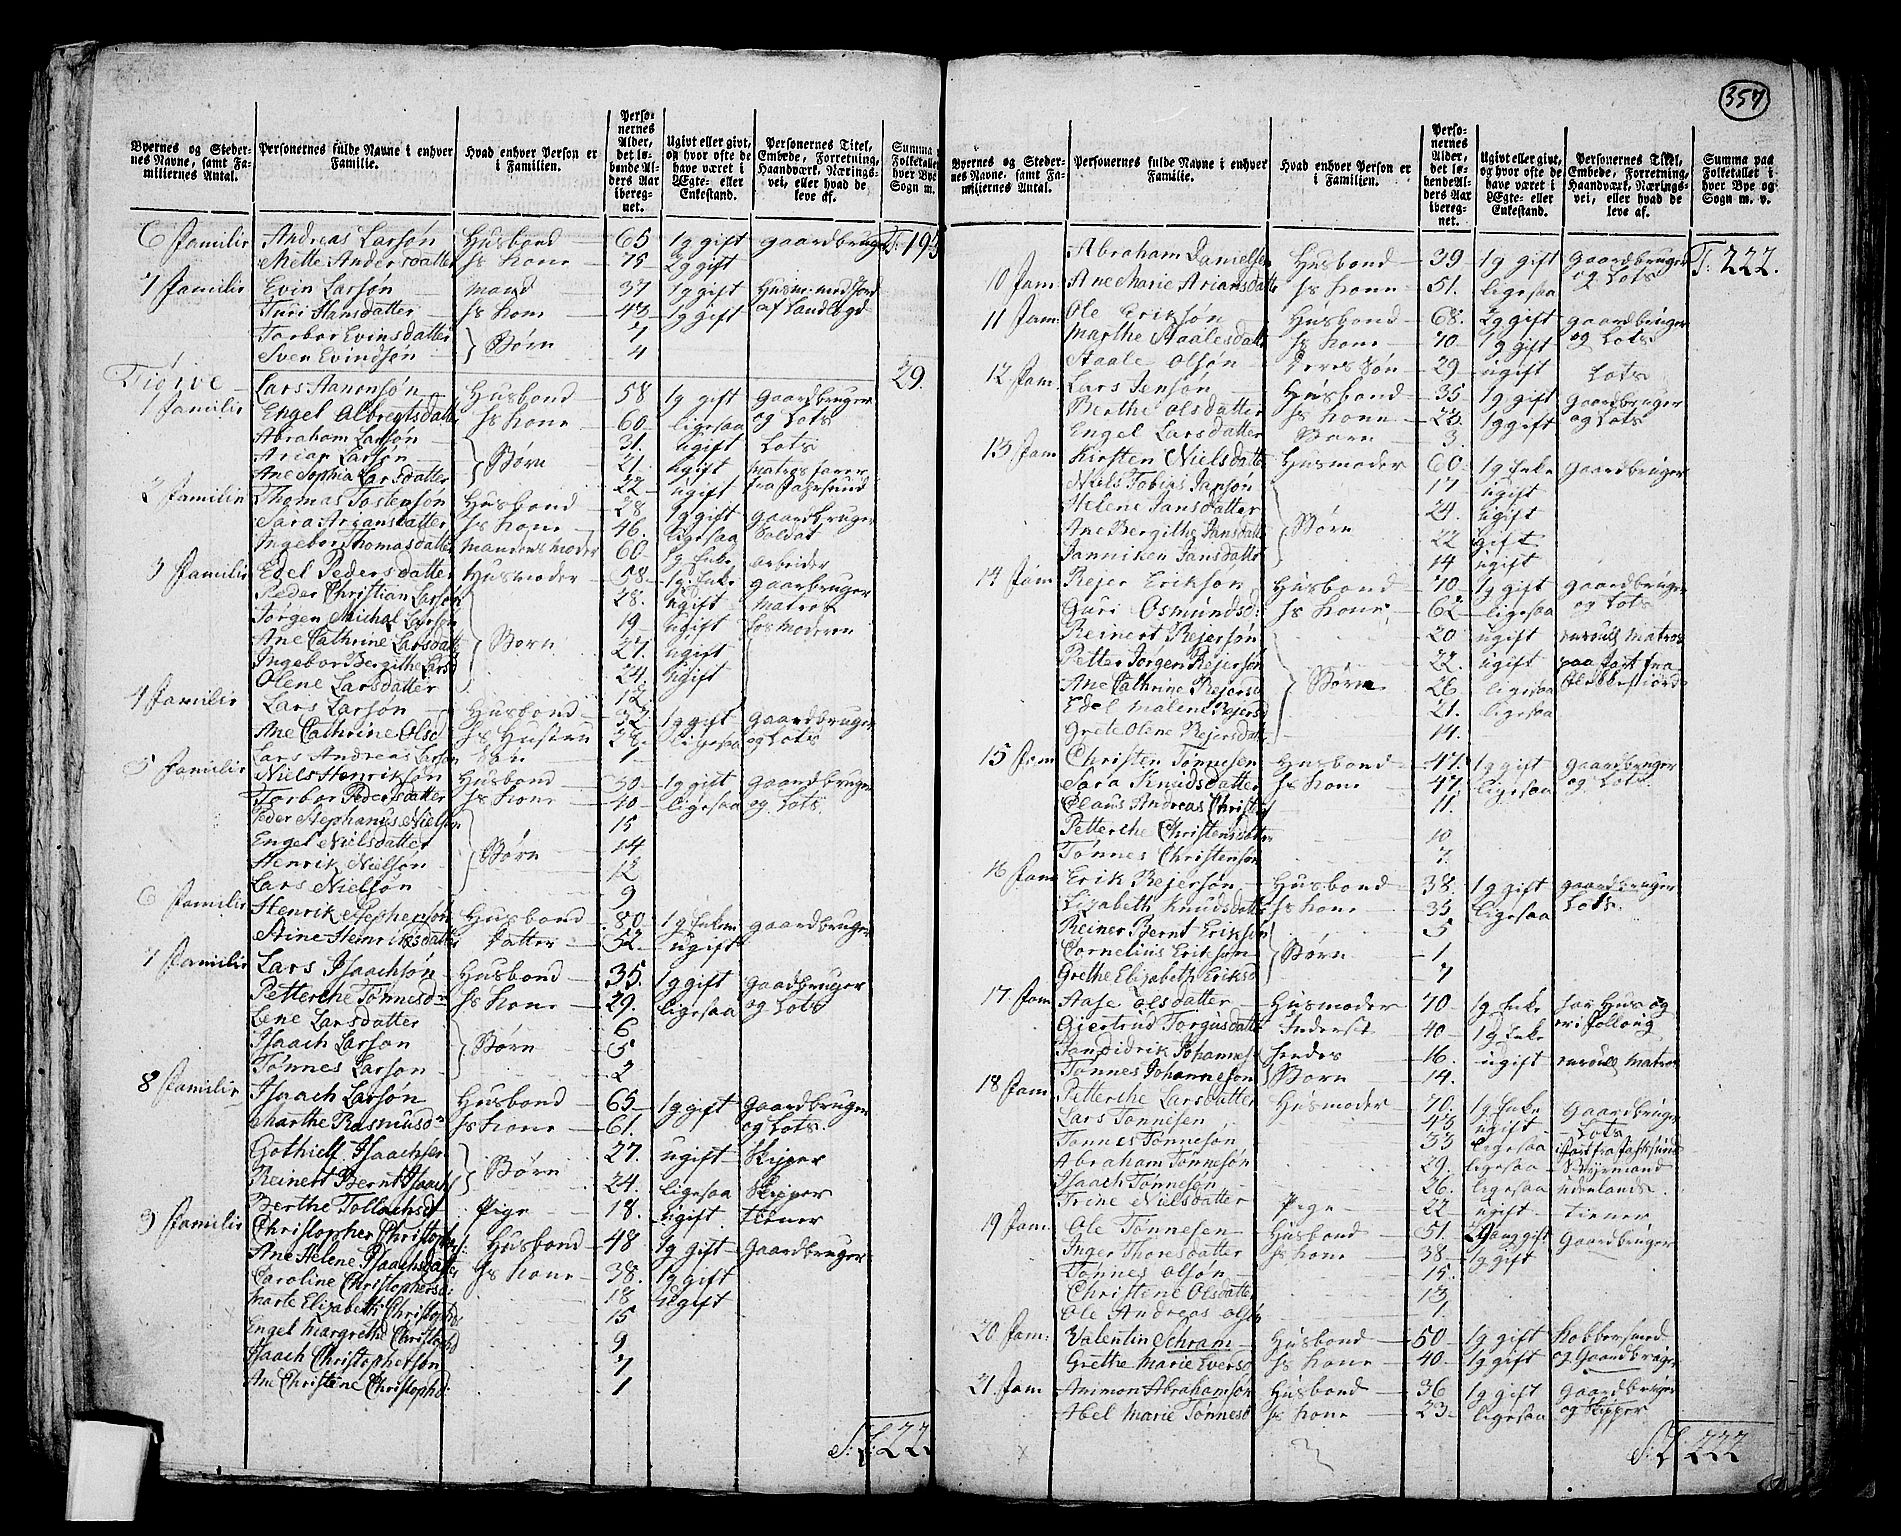 357
Byernes og Steder-nes Navne, samt Fa-miliernes Antal. Personernes fulde Navne i enhver Familie. Hvad enhver Person er i Familien. Perso-nernes Alder, det lø-bende Al-ders Aar iberegnet. Ugivt eller givt, og hvor ofte de have været i Ægte- eller Enkestand. Personernes Titel, Embede, Forretning, Haandværk, Nærings-vei, eller hvad de leve af. Summa Folketallet hver Bye Sogn m.
6 Familie Andreas Larsøn Husbond 65 1g gift gaardbruger T: 195
Mette Andersdatter hs Kone 75 2g gift
7 Familie Evin Larsøn mand 37 1g gift Husm: med Jord
Turi Hansdatter hs Kone 43 1g gift
Torbor Evinsdatter } Børn 7
Sven Evindsøn 4
Tiørve 29.
1 Familie Lars Aanensøn Husbond 58 1g gift gaardbruger
Engel Albregtsdatter hs Kone 60 ligesaa og Lots
Abraham Larsøn 31. ugift Lots
Arian Larsøn } Børn 21. ugift matros farer
Ane Sophia Larsdatter 22 ugift fra Farsund
2 Familie Thomas Tostensøn Husbond 28 1g gift gaardbruger
Sara Ariansdatter hs Kone 46. ligesaa Soldat
Ingebor Thomasdatter mandens moder 60 1g Enke arbeider
3 Familie Edel Pedersdatter Husmoder 58 1g: Enke gaarbruger
Peder Christian Larsøn 28. ugift matros
Jørgen Michal Larsøn 19 ugift hos moderen
Ane Cathrine Larsdatt } Børn 27. ugift
Ingebor Bergithe Larsd 24. ugift
Olene Larsdatter 12
4 Familie Lars Larsøn Husbond 32 1g gift gaardbruger
Ane Cathrine Olsd hs Hustru 28. ligesaa og Lots
Lars Andreas Larsøn 1
5 Familie Niels Henriksøn Husbond 50 1g gift gaardbruger
Torbor Pedersdatter hs Kone 40 ligesaa og Lots.
Peder Stephanus Nielsen 15
Engel Nielsdatter } Børn 14
Henrik Nielsøn 12
Lars Nielsøn 9
6 Familie Henrik Stephensøn Husbond 80 1g Enkem gaardbruger
Stine Henriksdatter Datter 32 ugift
7 Familie Lars Isaachsøn Husbond 35. 1g gift gaardbruger
Petterche Tønnesd hs Kone 29. ligesaa og Lots
Lene Larsdatter 6
Isaach Larsøn } Børn 5
Tønnes Larsøn 2
8 Familie Isaach Larsøn Husbond 65 1g gift gaardbruger
Marthe Rasmusd hs Kone 61. og Lots.
Gothielf Isaachsen 27. ugift Skipper
Reinert Bernt Isaach } Børn 24. ligesaa Skipper
Berthe Tollachsd Pige 18. ugift tiener
9 Familie Christopher Christoph Husbond 48 1g gift gaardbruger
Ane Helene Isaachsdatter hs Kone 38. 1g gift
Caroline Christophersd: 18 ugift
Marte Elizabeth Christoph: 15
Engel Margrethe Christophd 9
Isaach Christophersøn 7
Ane Christene Christophd: 1
S: L: 222
Byernes og Steder-nes Navne, samt Fa-miliernes Antal. Personernes fulde Navne i enhver Familie. Hvad enhver Person er i Familien. Perso-nernes Alder, det lø-bende Al-ders Aar iberegnet. Ugivt eller givt, og hvor ofte de have været i Ægte- eller Enkestand. Personernes Titel, Embede, Forretning, Haandværk, Nærings-vei, eller hvad de leve af. Summa paa Folketallet i hver Bye og Sogn m. v.
Abraham Danielsen Husbond 39 1g gift gaardbruger T: 222.
10 Fam Ane Marie Ariansdatter hs Kone 51. ligesaa og Lots
11 Fam: Ole Eriksøn Husbond 68. 2g gift gaardbruger
Marthe Staalesdatt hs Kone 70 1g gift og Lots
Staale Olsøn Deres Søn 29 ugift Lots
12 Fam Lars Jensøn Husbond 35 1g gift gaardbruger
Berthe Olsdatter hs Kone 23. 1g gift og Lots
Engel Larsdatter Barn 3
13 Fam Kirsten Nielsdatter Husmoder 60 1g Enke gaardbruger
Niels Tobias Jansøn 17 ugift
Helene Jansdatter 24. ugift
Ane Bergithe Jansdatt } Børn 22 gift
Janniken Jansdatter 14 ugift
14 Fam Rejer Eriksøn Husbond 70 1g gift gaardbruger
Guri Osmundsd: hs Kone 62 ligesaa og Lots
Reinert Rejersøn 20 ugift matros
Petter Jørgen Rejersøn 22. ugift paa fart fra
Ane Cathrine Rejersd } Børn 26 ligesaa Flekkefiord
Edel Malene Rejersd 21. ligesaa
Grete Olene Rejersdatt 14.
15 Fam Christen Tønnesen Husbond 47. 1g gift gaardbruger
Sara Knudsdatter hs Kone 47 ligesaa og Lots.
Claus Andreas Christen 11.
Petterche Christensdatter 10
Tønnes Christensøn 7.
16 Fam Erik Rejersøn Husbond 38. 1g gift gaardbruger
Lizabeth Knudsdatt hs Kone 35 ligesaa Lots.
Reiner Bernt Eriksøn 5
Cornelius Eriksøn } Børn 1
Grethe Elizabeth Eriksd 7
17 Fam Aase Olsdatter Husmoder 70 1g Enke har Hus og
Giertrud Torgusdatt Inderst 40 1g Enke
Jan Didrik Johannes hendes 16. ugift matros
Tønnes Johannesøn } Børn 14.
18 Fam Petterche Larsdatter Husmoder 70. 1g Enke gaardbruger
Lars Tønnesen 45 ugift Lots
Tønnes Tønnesøn 33 ligesaa
Abraham Tønnesøn 29. ligesaa Styrmand
Isaach Tønnesen 26. ligesaa udenlands.
Trine Nielsdatter Pige 22 ugift tiener
19 Fam. Ole Tønnesen Husbond 51. 2 gang gift gaardbruger
Inger Thoresdatter hs Kone 38 1g gift
Tønnes Olsøn 15.
Christene Olsdatter 13
Ole Andreas Olsøn 1
20 Fam: Valentin Schram Husbond 50 1g gift
Grethe Marie Eversd hs Kone 40 1g gift og Gaardbruger
21 Fam Animon Abrahamsøn Husbond 36 1g gift gaardbruger
Abel Marie Tønnesd hs Kone 23 ligesaa og Skipper
S: L: 222